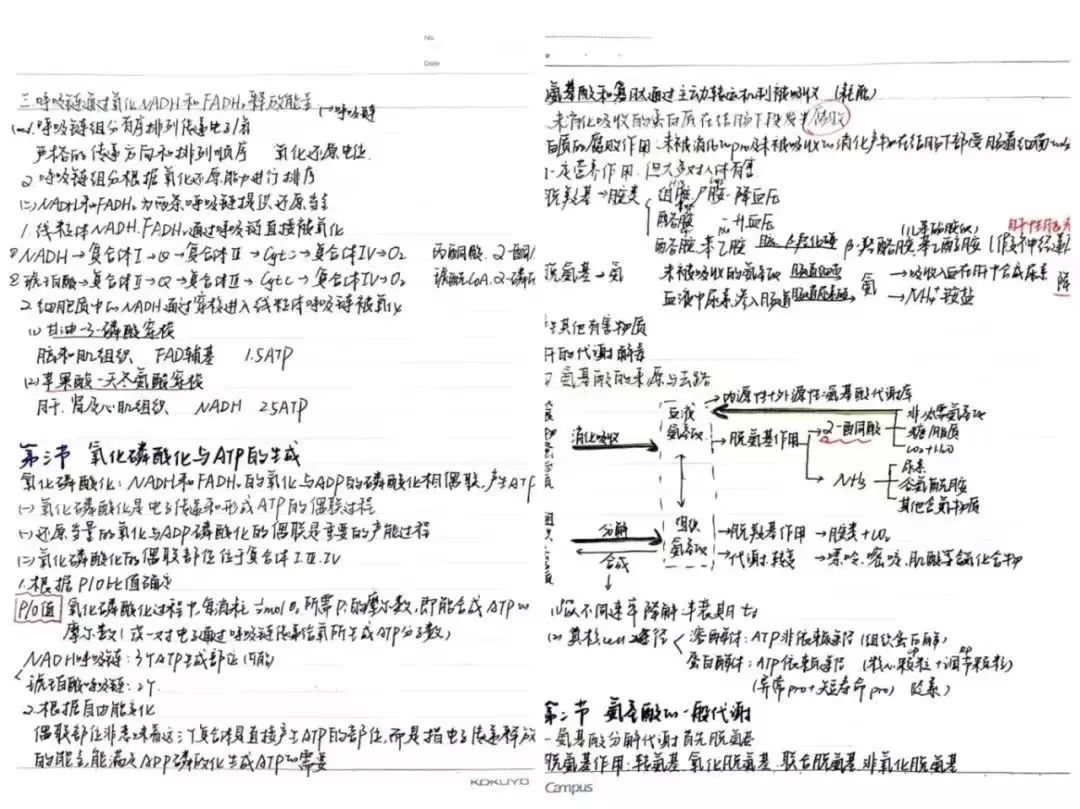 No.
Date
三.呼吸链通过氧化NADH和FADH₂释放能量
(一)呼吸链
1.呼吸链组分有序排列传递电子/氢
严格的传递方向和排列顺序 氧化还原电位
2.呼吸链组分根据氧化还原能力进行排序
(二)NADH和FADH₂为两条呼吸链提供还原当量
1.线粒体NADH.FADH₂通过呼吸链直接被氧化
①NADH→复合体I→Q→复合体III→Cytc→复合体IV→O₂ 丙酮酸.α-酮
②琥珀酸→复合体II→Q→复合体III→Cytc→复合体IV→O₂ 琥酰CoA.α-磷
2.细胞质中的NADH通过穿梭进入线粒体呼吸链被氧化
(1)甘油-3-磷酸穿梭
脑和肌组织 FAD辅基 1.5ATP
(2)苹果酸-天冬氨酸穿梭
肝.肾及心肌组织 NADH 2.5ATP
第三节 氧化磷酸化与ATP的生成
氧化磷酸化:NADH和FADH₂的氧化与ADP的磷酸化相偶联,产生ATP
(一)氧化磷酸化是电子传递和形成ATP的偶联过程
(一)还原当量的氧化与ADP磷酸化的偶联是重要的产能过程
(二)氧化磷酸化的偶联部位位于复合体I.III.IV
1.根据P/O比值确定
P/O值 氧化磷酸化过程中,每消耗½molO₂所需Pi的摩尔数,即能合成ATP的
摩尔数(或一对电子通过呼吸链传递给氧所生成ATP分子数)
NADH呼吸链:3个ATP生成部位
琥珀酸呼吸链:2个
2.根据自由能变化
偶联部位非意味着这三个复合体是直接产生ATP的部位,而是指电子传递释放
的能量,能满足ADP磷酸化生成ATP的需要
KOKUYO
氨基酸和寡肽通过主动转运机制被吸收(耗能)
未消化吸收的蛋白质在结肠下段发生腐败
白质的腐败作用.未被消化的pro及未被吸收的消化产物在结肠下部受肠道细菌的
一定营养作用,但大多对人体有害
脱羧基→胺类 组胺 尸胺-降血压
酪胺 -升血压
酪胺.苯乙胺 β-羟酪胺.苯乙醇胺
脱氨基→氨 未被吸收的氨基酸 肠道细菌 氨 →吸收入血在肝中合成尿素 降
血液中尿素渗入肠道 肠道尿素酶 →NH₄⁺铵盐
生其他有害物质
肝的代谢解毒
氨基酸的来源与去路
→内源性+外源性:氨基酸代谢库
消化吸收 血液氨基酸 →脱氨基作用 →α-酮酸 非必需氨基酸
糖/脂质
CO₂+H₂O
NH₃ 尿素
含氮酰胺
其他含氮物质
分解 组织氨基酸 →脱羧基作用→胺类+CO₂
合成 →代谢转变→嘌呤.嘧啶.肌酸等含氮化合物
(1)以不同速率降解 半衰期
(2)真核cell 2途径 溶酶体:ATP非依赖途径(组织蛋白酶)
蛋白酶体:ATP依赖途径(核心颗粒+调节颗粒)
(异常pro+短寿命pro)
第三节 氨基酸的一般代谢
一.氨基酸分解代谢首先脱氨基
脱氨基作用:转氨基.氧化脱氨基.联合脱氨基.非氧化脱氨基
Campus